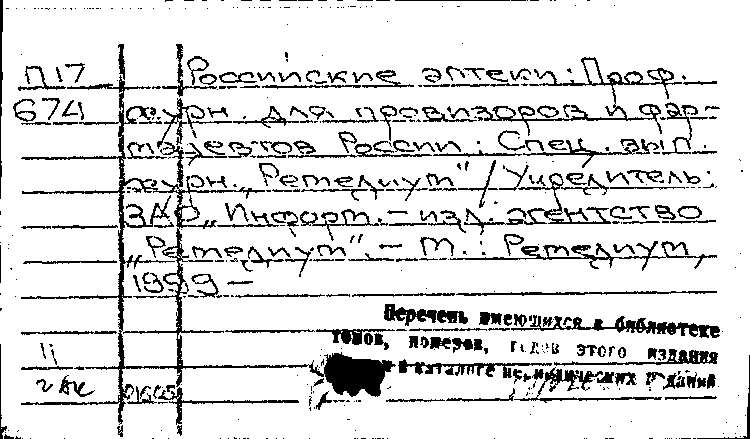 П17 Российские аптеки: Проф.
674 журн. для провизоров и фар-
мацевтов России: Спец. вып.
журн. „Ремедиум" / Учредитель:
ЗАО „Информ.-изд. агентство
„Ремедиум". - М.: Ремедиум,
1999 -
Перечень имеющихся в библиотеке
томов, номеров, годов этого издания
в каталоге периодических изданий